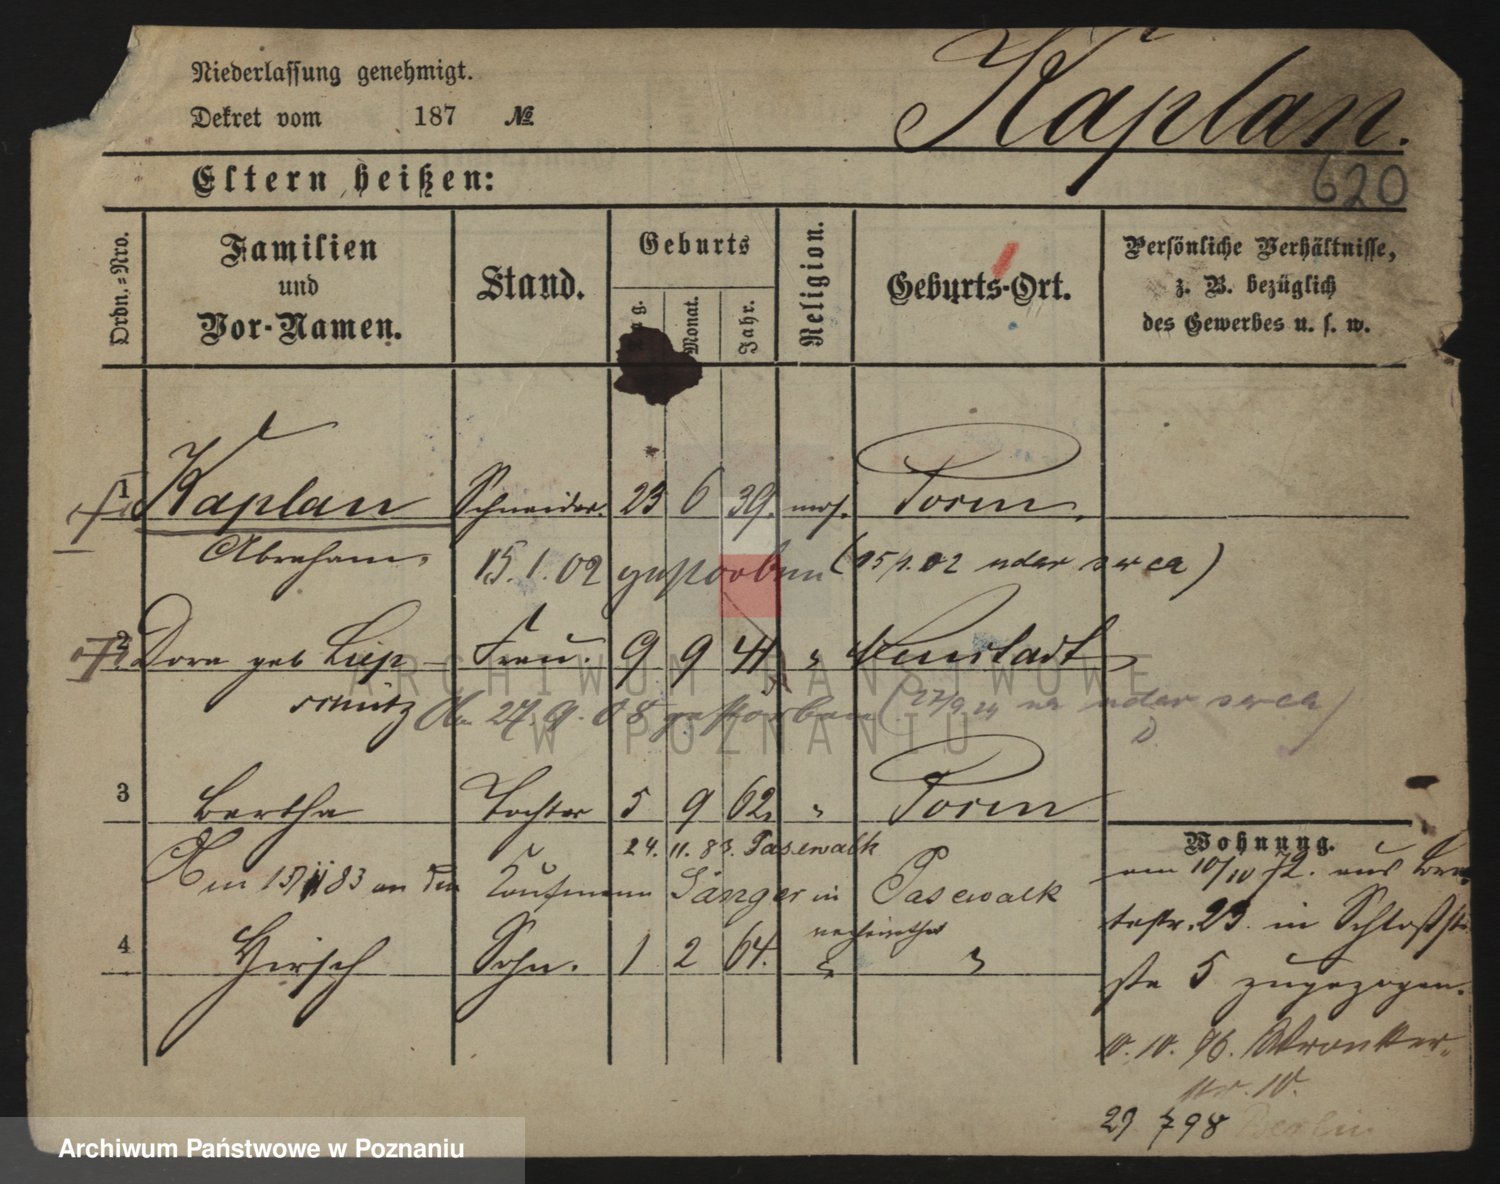 Niederlassung genehmigt.
Dekret vom 187 №
Kaplan.
620
Eltern heißen:
Ordn.-Nro.
Familien
und
Vor-Namen.
Stand.
Geburts
Tag.
Monat.
Jahr.
Religion.
Geburts-Ort.
Persönliche Verhältnisse,
z. B. bezüglich
des Gewerbes u. s. w.
1 Kaplan Schneider. 23 6 39. mos. Posen.
Abraham. 15.1.02 gestorben (15/1.02
2 Dora geb Liep- Frau. 9 9 41 " Neustadt
schütz 27.9.08 gestorben
3 Bertha Tochter 5 9 62. " Posen
24. 11. 83. Pasewalk
Am 83 an den Kaufmann Sänger in Pasewalk
verheirathet
4 Hirsch Sohn. 1 2 64. " "
Wohnung.
am 10/10 72. aus
23. in
5 zugezogen.
10. 10. 96. Wronker-
str. 10.
29 7 98 Berlin
ARCHIWUM PAŃSTWOWE
W POZNANIU
Archiwum Państwowe w Poznaniu